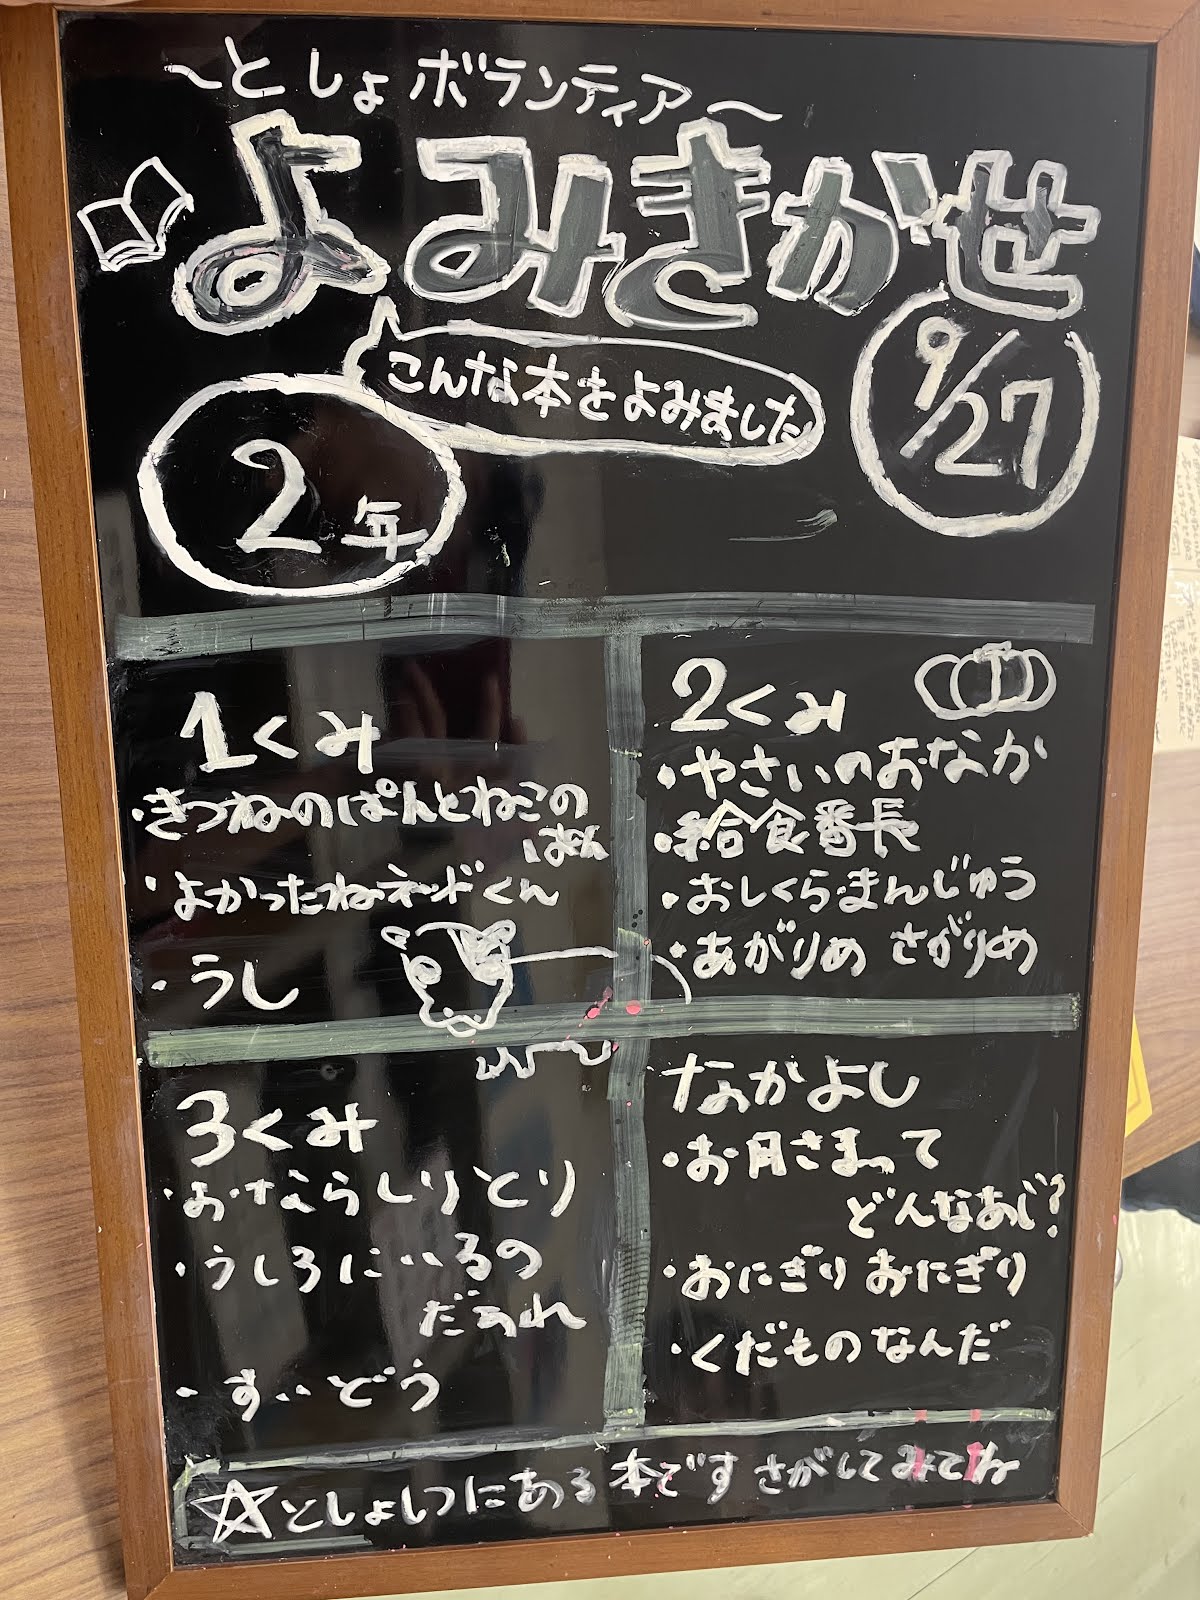 ～としょボランティア～
よみきかせ
こんな本をよみました
9/27
2年
1くみ
・きつねのぱんとねこの
ぱん
・よかったねネッドくん
・うし
2くみ
・やさいのおなか
・給食番長
・おしくらまんじゅう
・あがりめ さがりめ
3くみ
・おならしりとり
・うしろにいるの
だあれ
・すいどう
なかよし
・お月さまって
どんなあじ?
・おにぎり おにぎり
・くだものなんだ
☆としょしつにある本です さがしてみてね